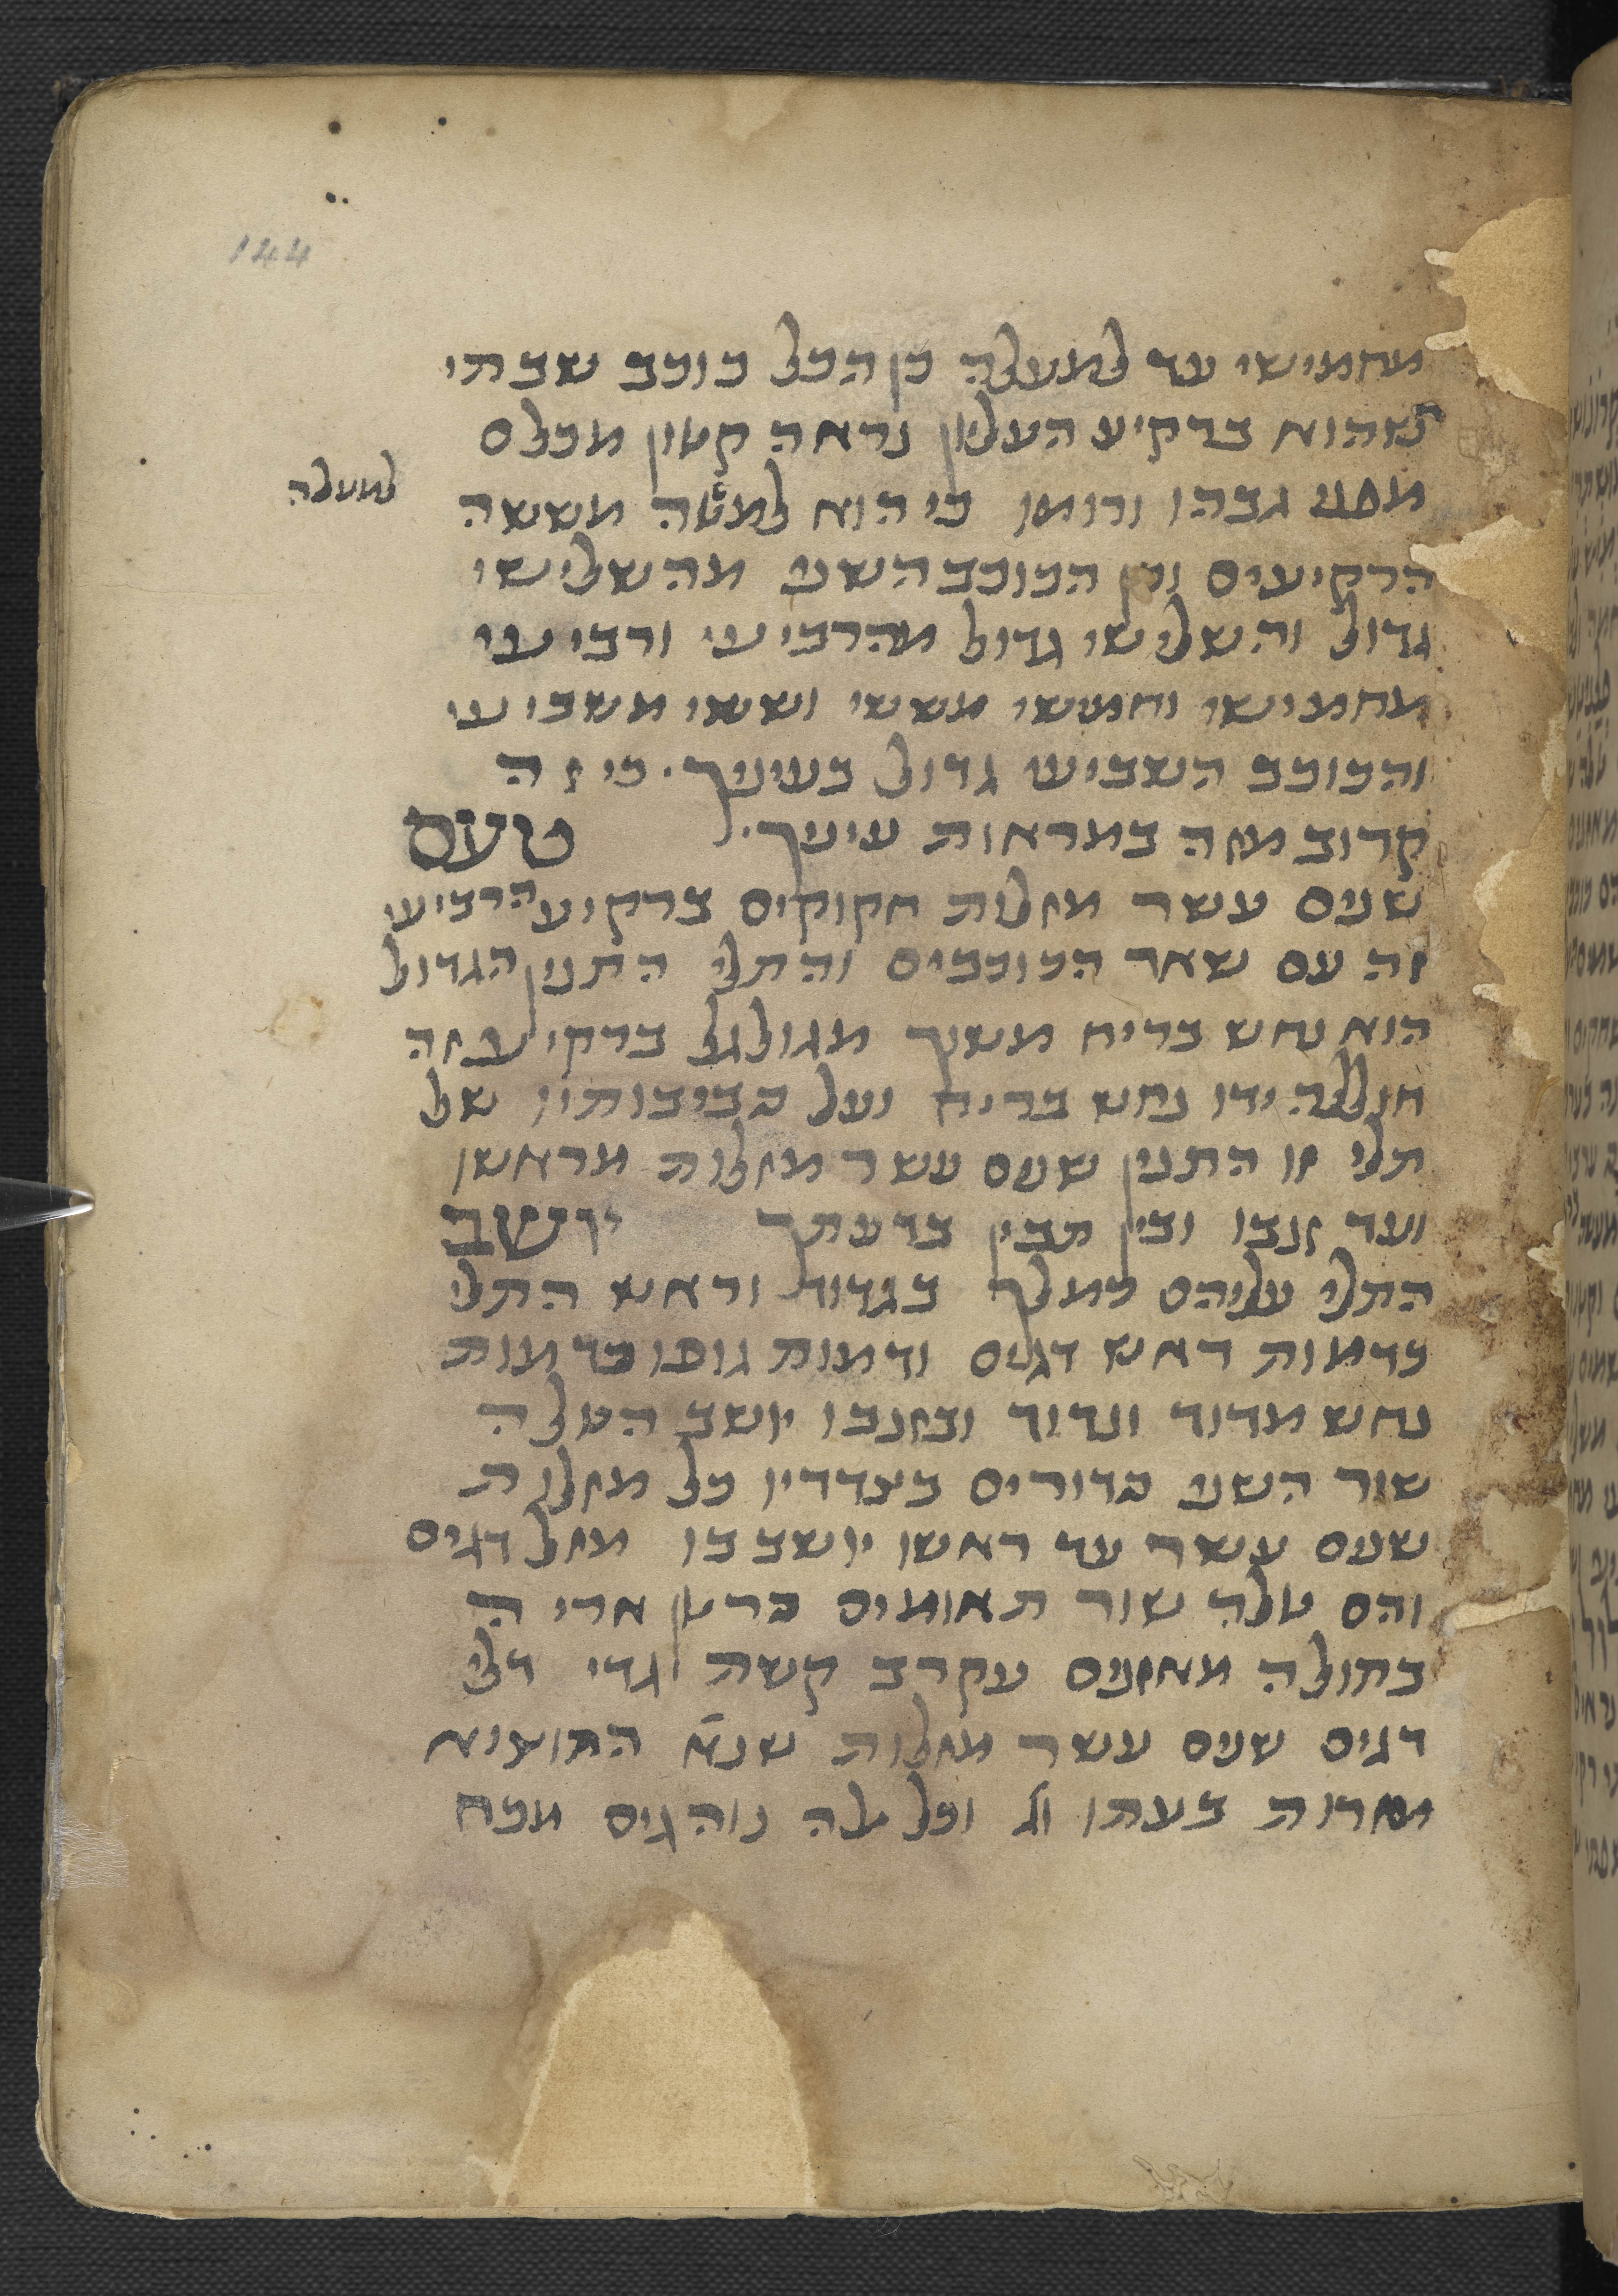 144
מחמישי עד למעלה כן הכל כוכב שבתי
שהוא ברקיע העליון נראה קטון מכלם
מפני גבהו ורומו כי הוא למטה מששה
למעלה
הרקיעים וכן הכוכב השני מהשלישי
גדול והשלישי גדול מהרביעי ורביעי
מחמישי וחמישי מששי וששי משביעי
והכוכב השביעי גדול בעיניך. כי זה
קרוב מזה במראות עיניך. טעם
שנים עשר מזלות חקוקים ברקיע הרביעי
זה עם שאר הכוכבים והתלי התנין הגדול
הוא נחש בריח משוך מגולגל ברקיע זה
חוללה ידו נחש בריח ועל סביבותיו של
תלי זו התנין שנים עשר מזלות מראשו
ועד זנבו ובין תבין בדעתך יושב
התלי עליהם כמלך בגדוד וראש התלי
כדמות ראש דגים ודמות גופו כדמות
נחש מדוד ונדוד ובזנבו יושב הטלה
שור השני סדורים בצדדיו כל מזלות
שנים עשר עד ראשו יושב בו מזל דגים
והם טלה שור תאומים סרטן אריה
בתולה מאזנים עקרב קשת גדי דלי
דגים שנים עשר מזלות שנא התוציא
מזרות בעתו וג׳ וכל אלה נוהגים מכח